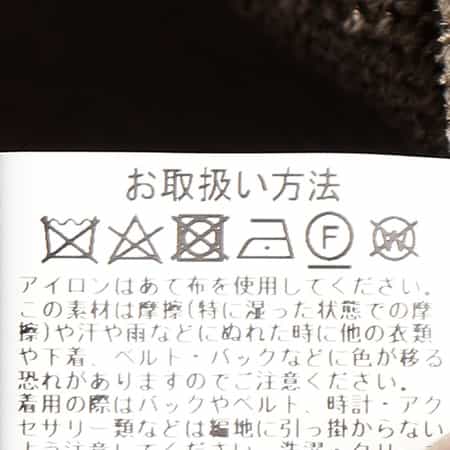 お取扱い方法
F W
アイロンはあて布を使用してください。
この素材は摩擦(特に湿った状態での摩
擦)や汗や雨などにぬれた時に他の衣類
や下着、ベルト・バックなどに色が移る
恐れがありますのでご注意ください。
着用の際はバックやベルト、時計・アク
セサリー類などは編地に引っ掛からない
よう注意してください。洗濯・クリ